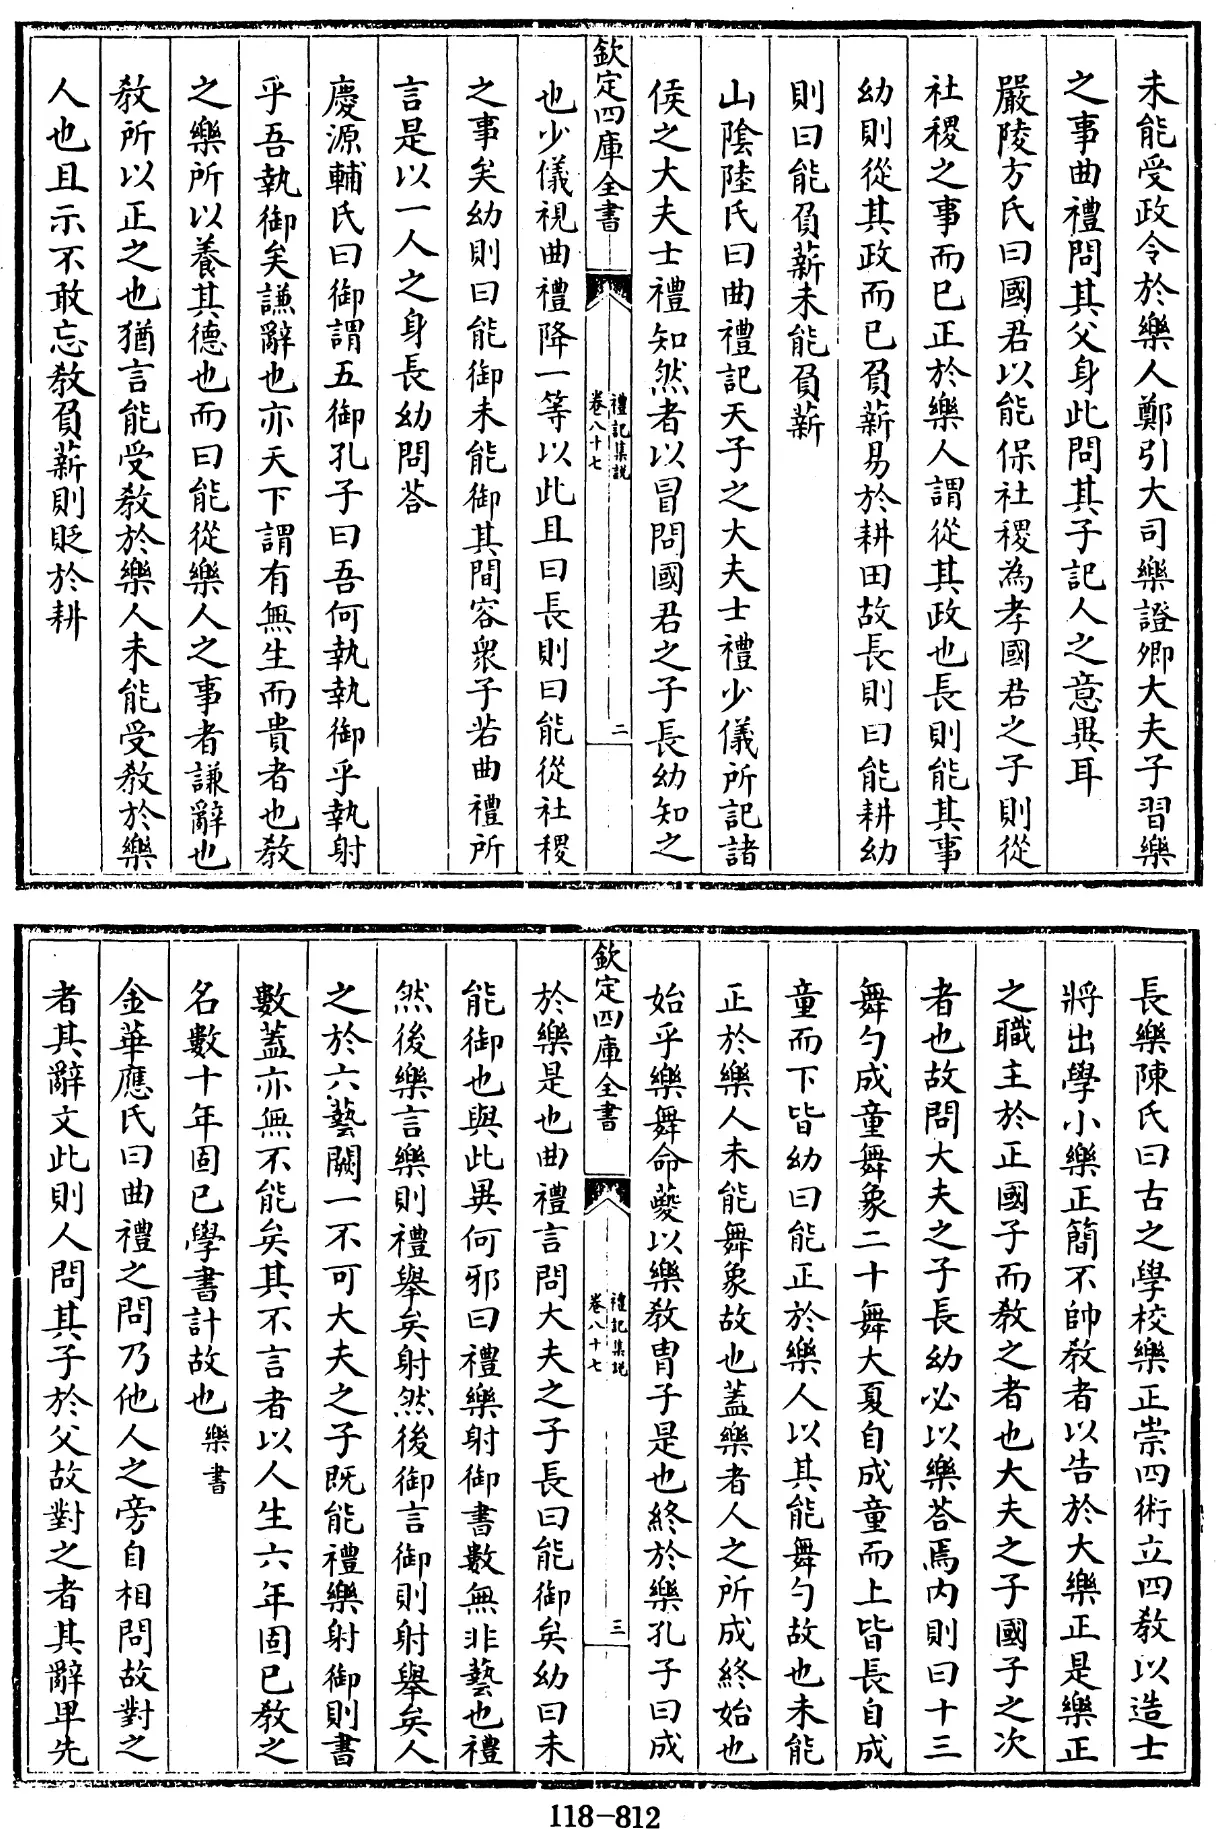 未能受政令於樂人鄭引大司樂證卿大夫子習樂
之事曲禮問其父身此問其子記人之意異耳
嚴陵方氏曰國君以能保社稷為孝國君之子則從
社稷之事而已正於樂人謂從其政也長則能其事
幼則從其政而已負薪易於耕田故長則曰能耕幼
則曰能負薪未能負薪
山陰陸氏曰曲禮記天子之大夫士禮少儀所記諸
侯之大夫士禮知然者以冒問國君之子長幼知之
欽定四庫全書
禮記集説
卷八十七
二
也少儀視曲禮降一等以此且曰長則曰能從社稷
之事矣幼則曰能御未能御其間容衆子若曲禮所
言是以一人之身長幼問荅
慶源輔氏曰御謂五御孔子曰吾何執執御乎執射
乎吾執御矣謙辭也亦天下謂有無生而貴者也教
之樂所以養其德也而曰能從樂人之事者謙辭也
教所以正之也猶言能受教於樂人未能受教於樂
人也且示不敢忘教負薪則貶於耕
長樂陳氏曰古之學校樂正崇四術立四教以造士
將出學小樂正簡不帥教者以告於大樂正是樂正
之職主於正國子而教之者也大夫之子國子之次
者也故問大夫之子長幼必以樂荅焉内則曰十三
舞勺成童舞象二十舞大夏自成童而上皆長自成
童而下皆幼曰能正於樂人以其能舞勺故也未能
正於樂人未能舞象故也蓋樂者人之所成終始也
始乎樂舞命夔以樂教胄子是也終於樂孔子曰成
欽定四庫全書
禮記集説
卷八十七
三
於樂是也曲禮言問大夫之子長曰能御矣幼曰未
能御也與此異何邪曰禮樂射御書數無非藝也禮
然後樂言樂則禮舉矣射然後御言御則射舉矣人
之於六藝闕一不可大夫之子既能禮樂射御則書
數蓋亦無不能矣其不言者以人生六年固已教之
名數十年固已學書計故也樂書
金華應氏曰曲禮之問乃他人之旁自相問故對之
者其辭文此則人問其子於父故對之者其辭卑先
118-812